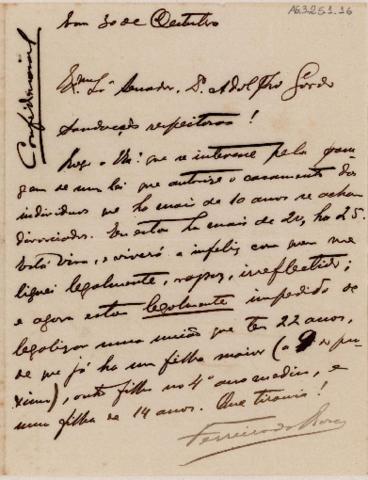 AG.3251.16
30 de Outubro
Confidencial
Exmo. Sr. Senador, Dr. Adolpho Gordo
Saudações respeitosas!
Rogo a V. que se interesse pela
de uma lei que autorise o casamento dos
individuos que ha mais de 10 annos se acham
divorciados. Eu estou ha mais de 20, ha 25.
viva, e viverá a infeliz com quem me
liguei legalmente, rapaz, irreflectido;
e agora estou legalmente impedido de
legalizar uma união que tem 22 annos,
de que já ha um filho maior (a 9 de
), outro filho no 4º anno medico, e
uma filha de 14 anos. Que tirania!
Ferreira da Rosa